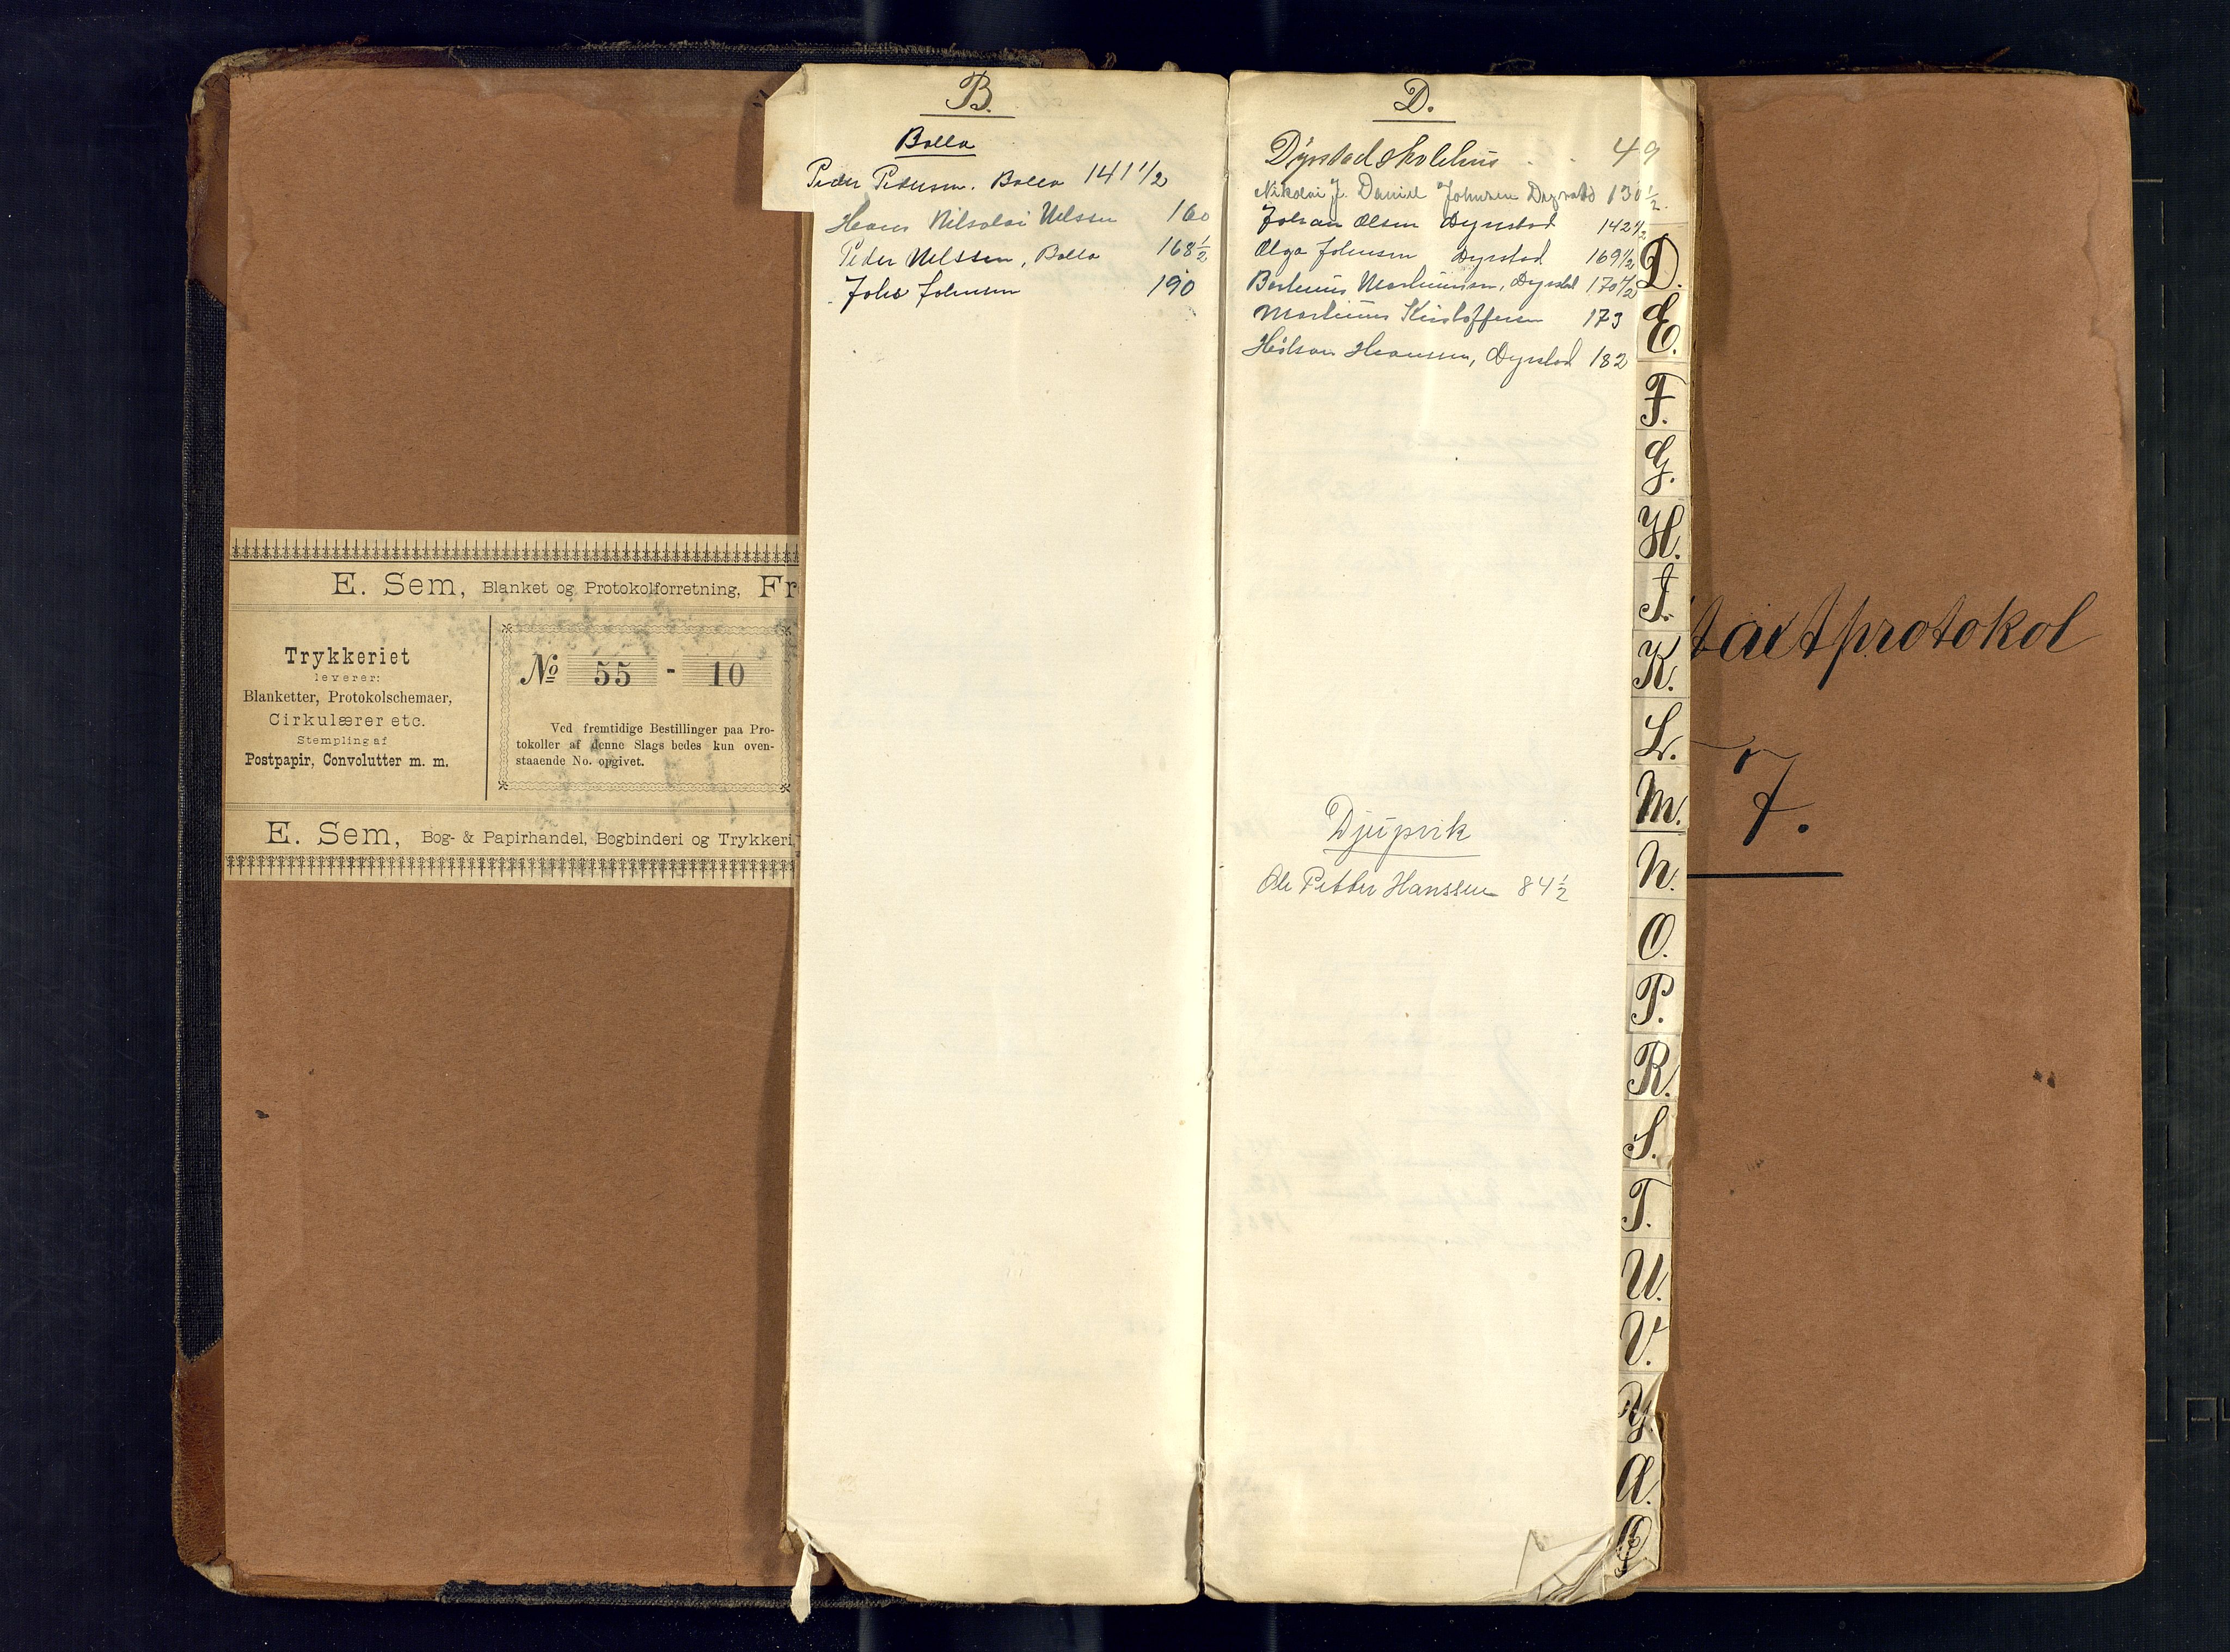 E. Sem, Blanket og Protokolforretning, Fr
Trykkeriet
leverer:
Blanketter, Protokolschemaer,
Cirkulærer etc.
Stempling af
Postpapir, Convolutter m. m.
No 55 - 10
Ved fremtidige Bestillinger paa Pro-
tokoller af denne Slags bedes kun oven-
staaende No. opgivet.
E. Sem, Bog- & Papirhandel, Bogbinderi og Trykkeri,
B.
Bolla
Peder Pedersen. Bolla 141 1/2
Hans Nikolai Nilssen 160
Peder Nilssen, Bolla 168 1/2
Johs Johnsen 190
D.
Dyrstad skolehus . . 49
Nikolai J. Daniel Johnsen Dyrstad 130 1/2.
Johan Olsen Dyrstad 142 1/2
Olga Johnsen Dyrstad 169 1/2
Bertinus Martinussen, Dyrstad 170 1/2
Martinus Kristoffersen 173
Hanssen, Dyrstad 182
Djupvik
Ole Petter Hanssen 84 1/2
D.
E.
F.
G.
H.
I.
K.
L.
M.
N.
O.
P.
R.
S.
T.
U.
V.
Y.
Æ.
Ø
taxtprotokol
7.